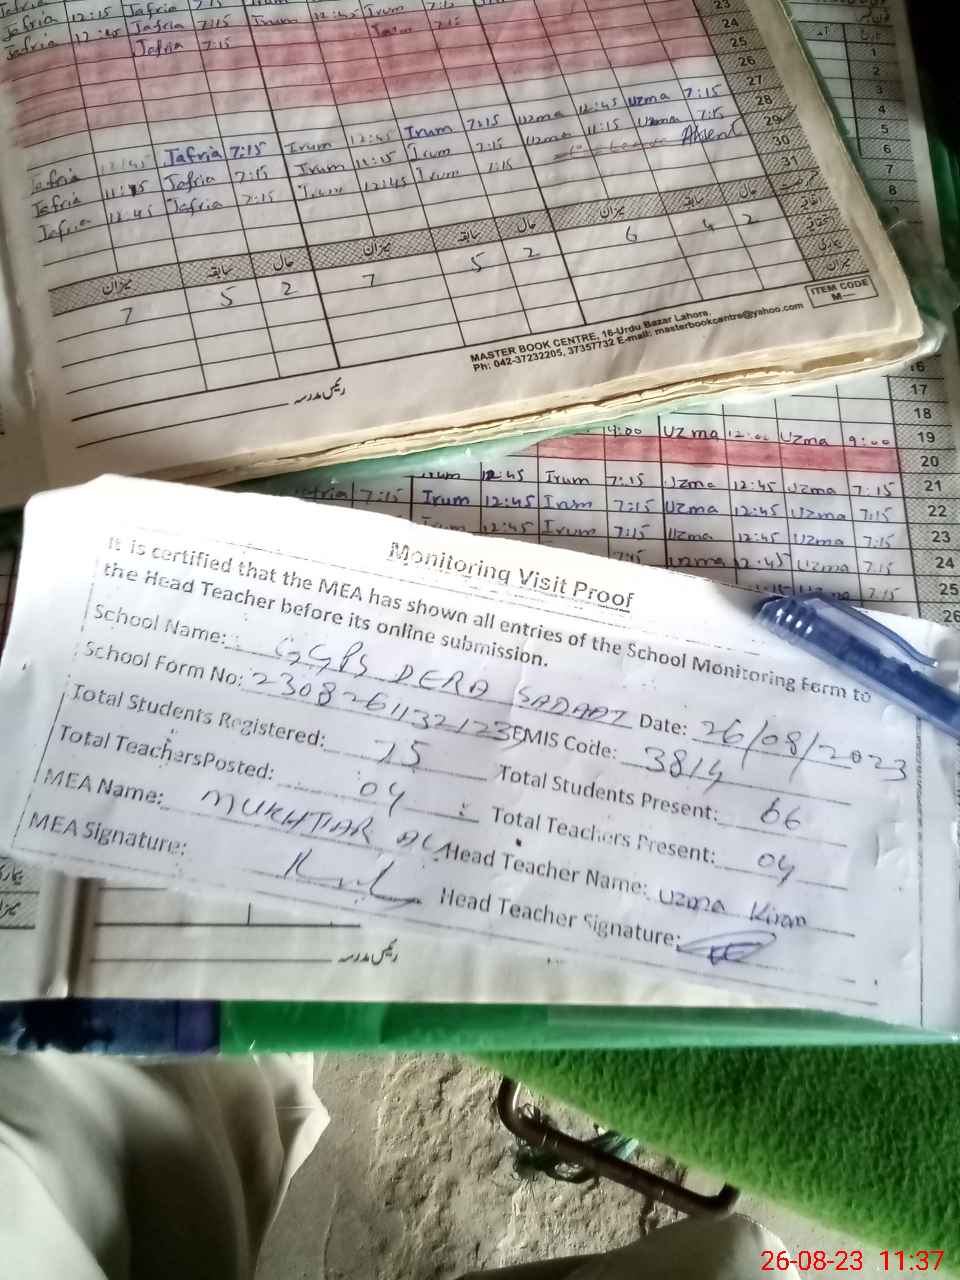 Jafria 12:15 Jafria 7:15
Jafria 12:45 Jafria 7:15 Irum 12:45 Irum 7:15
Jafria 7:15 7:15
23
24
25
26
27
28
29
30
31
Jafria 12:45 Jafria 7:15 Irum 12:45 Irum 7:15 Uzma 12:45 Uzma 7:15
Jafria 11:15 Jafria 7:15 Irum 11:15 Irum 7:15 Uzma 11:15 Uzma 7:15
Jafria 12:45 Jafria 7:15 Irum 12:45 Irum 7:15 Absent
میزان سابقہ حال میزان سابقہ حال میزان سابقہ حال
7 5 2 7 5 2 6 4 2
ITEM CODE
M—
MASTER BOOK CENTRE, 16-Urdu Bazar Lahore.
Ph: 042-37232205, 37357732 E-mail: masterbookcentre@yahoo.com
رئیس مدرسہ
1
2
3
4
5
6
7
8
16
17
18
9:00 Uzma 12:00 Uzma 9:00 19
20
Irum 12:45 Irum 7:15 Uzma 12:45 Uzma 7:15 21
7:15 Irum 12:45 Irum 7:15 Uzma 12:45 Uzma 7:15 22
Irum 12:45 Irum 7:15 Uzma 12:45 Uzma 7:15 23
7:15 Uzma 12:45 Uzma 7:15 24
7:15 25
26
Monitoring Visit Proof
It is certified that the MEA has shown all entries of the School Monitoring Form to
the Head Teacher before its online submission.
School Name: GGPS DERA SADAAT Date: 26/08/2023
School Form No: 2308261132123 EMIS Code: 3814
Total Students Registered: 75 Total Students Present: 66
Total TeachersPosted: 04 Total Teachers Present: 04
MEA Name: MUKHTIAR ALI Head Teacher Name: Uzma Kiran
MEA Signature: Head Teacher Signature:
رئیس مدرسہ
26-08-23 11:37